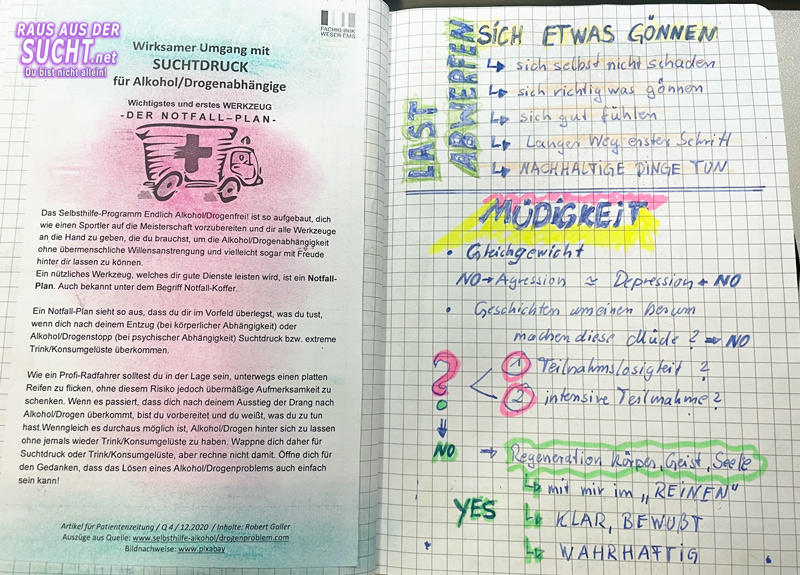 RAUS AUS DER
SUCHT.net
Du bist nicht allein!
FACHKLINIK
WESER-EMS
Wirksamer Umgang mit
SUCHTDRUCK
für Alkohol/Drogenabhängige
Wichtigstes und erstes WERKZEUG
-DER NOTFALL–PLAN-
Das Selbsthilfe-Programm Endlich Alkohol/Drogenfrei! ist so aufgebaut, dich
wie einen Sportler auf die Meisterschaft vorzubereiten und dir alle Werkzeuge
an die Hand zu geben, die du brauchst, um die Alkohol/Drogenabhängigkeit
ohne übermenschliche Willensanstrengung und vielleicht sogar mit Freude
hinter dir lassen zu können.
Ein nützliches Werkzeug, welches dir gute Dienste leisten wird, ist ein Notfall-
Plan. Auch bekannt unter dem Begriff Notfall-Koffer.
Ein Notfall-Plan sieht so aus, dass du dir im Vorfeld überlegst, was du tust,
wenn dich nach deinem Entzug (bei körperlicher Abhängigkeit) oder
Alkohol/Drogenstopp (bei psychischer Abhängigkeit) Suchtdruck bzw. extreme
Trink/Konsumgelüste überkommen.
Wie ein Profi-Radfahrer solltest du in der Lage sein, unterwegs einen platten
Reifen zu flicken, ohne diesem Risiko jedoch übermäßige Aufmerksamkeit zu
schenken. Wenn es passiert, dass dich nach deinem Ausstieg der Drang nach
Alkohol/Drogen überkommt, bist du vorbereitet und du weißt, was du zu tun
hast.Wenngleich es durchaus möglich ist, Alkohol/Drogen hinter sich zu lassen
ohne jemals wieder Trink/Konsumgelüste zu haben. Wappne dich daher für
Suchtdruck oder Trink/Konsumgelüste, aber rechne nicht damit. Öffne dich für
den Gedanken, dass das Lösen eines Alkohol/Drogenproblems auch einfach
sein kann!
Artikel für Patientenzeitung / Q 4 / 12.2020 / Inhalte: Robert Galler
Auszüge aus Quelle: www.selbsthilfe-alkohol/drogenproblem.com
Bildnachweise: www.pixabay
LAST
ABWERFEN
SICH ETWAS GÖNNEN
↳ sich selbst nicht schaden
↳ sich richtig was gönnen
↳ sich gut fühlen
↳ Langer Weg erster Schritt
↳ NACHHALTIGE DINGE TUN
MÜDIGKEIT
• Gleichgewicht
NO → Agression ≅ Depression ← NO
• Geschichten um einen herum
machen diese Müde? ⇒ NO
? < ① Teilnahmslosigkeit?
② intensive Teilnahme?
NO ⇒ Regeneration Körper, Geist, Seele
↳ mit mir im „REINEN"
YES ↳ KLAR, BEWUßT
↳ WAHRHAFTIG